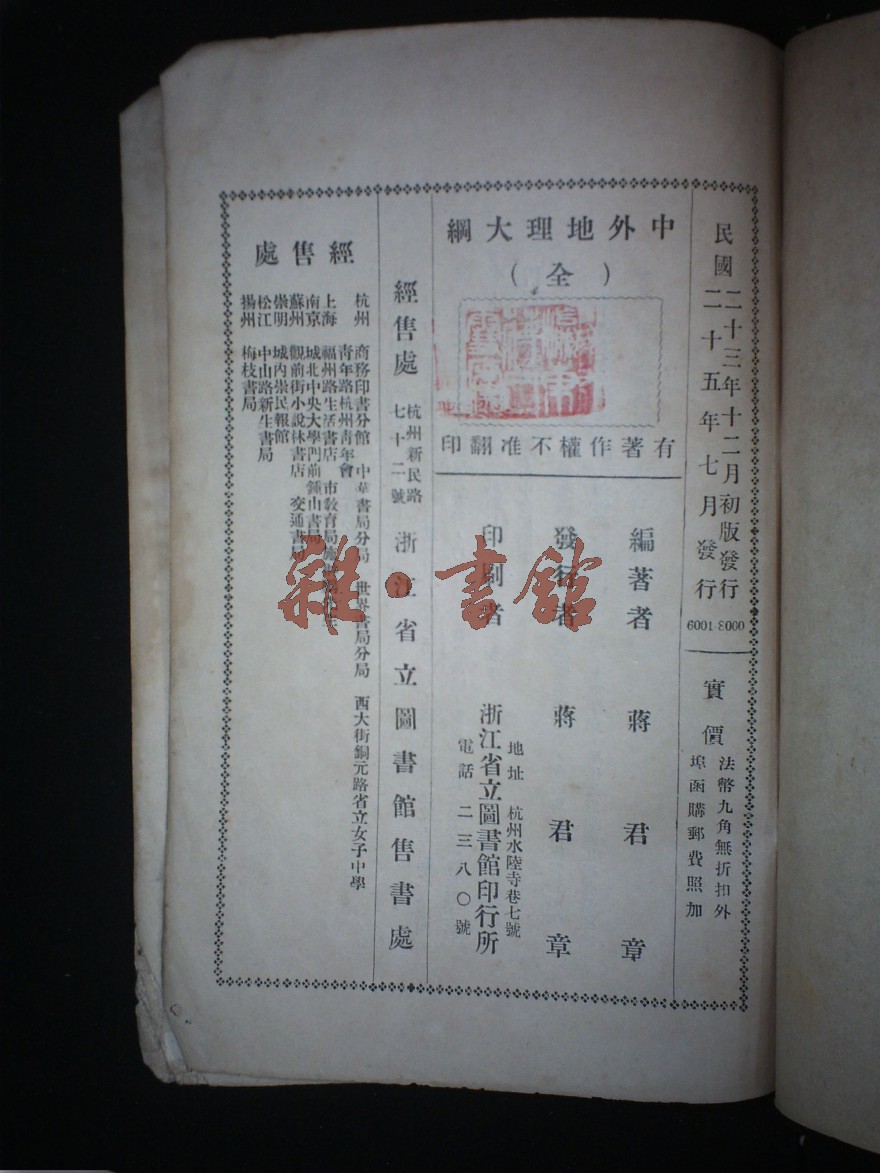 民國二十三年十二月初版發行
二十五年七月發行
6001-8000
實價
法幣九角無折扣外
埠函購郵費照加
中外地理大綱
（全）
有著作權不准翻印
編著者 蔣君章
發行者 蔣君章
印刷者
地址 杭州水陸寺巷七號
浙江省立圖書館印行所
電話 二三八〇號
經售處
杭州新民路
七十二號
浙江省立圖書館售書處
經售處
杭州 商務印書分館 中華書局分局 世界書局分局 西大街銅元路省立女子中學
青年路杭州青年會
上海 福州路生活書店 市教育局
南京 城北中央大學門前鍾山書局
蘇州 觀前街小說林書店 交通書局
崇明 城內崇民報館
松江 中山路新生書局
揚州 梅枝書局
雜·書館